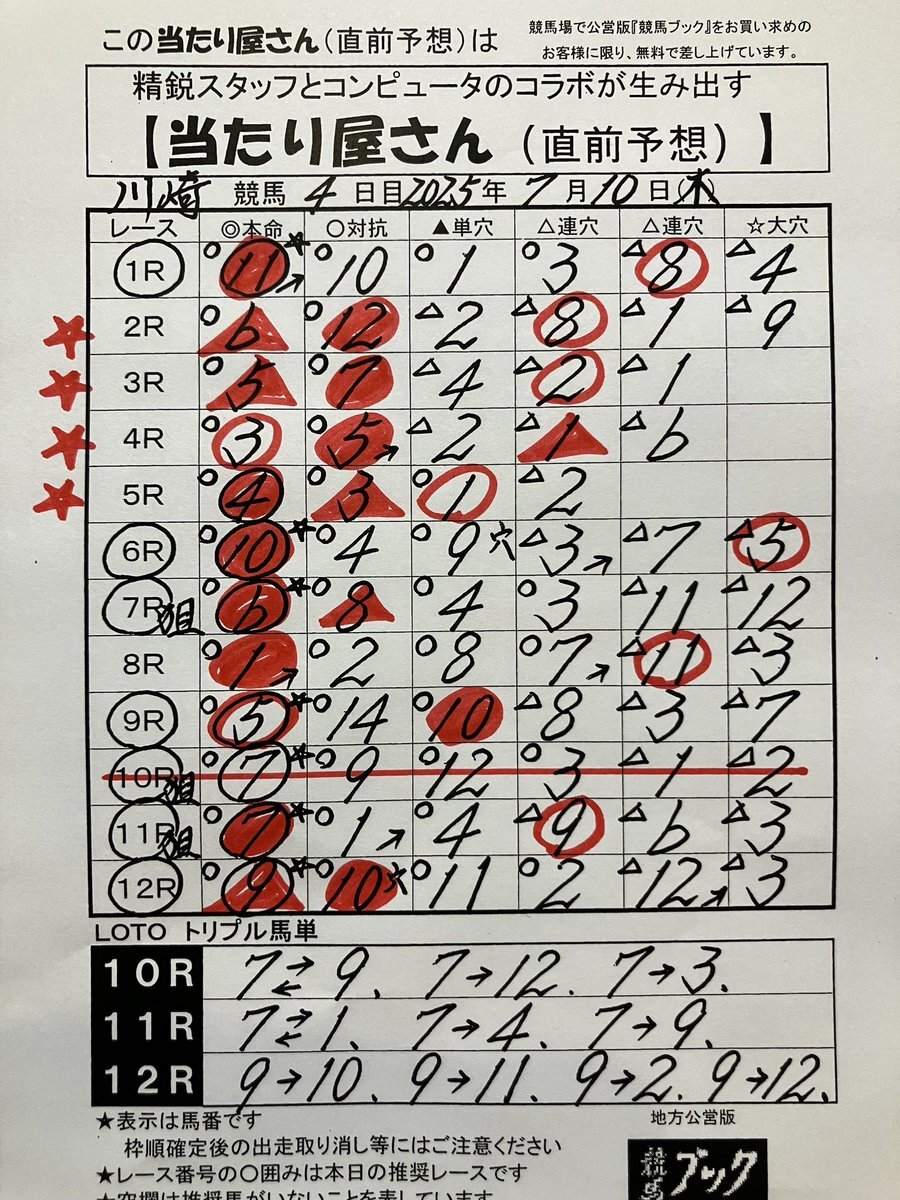 この当たり屋さん（直前予想）は
競馬場で公営版『競馬ブック』をお買い求めの
お客様に限り、無料で差し上げています。
精鋭スタッフとコンピュータのコラボが生み出す
【当たり屋さん（直前予想）】
川崎 競馬 4 日目 2025年 7月 10日(木)
レース ◎本命 ○対抗 ▲単穴 △連穴 △連穴 ☆大穴
1R ○11☆→ ○10 ○1 ○3 △8 △4
2R ○6 ○12 △2 △8 △1 △9
3R ○5 ○7 △4 △2 △1
4R ○3 ○5→ △2 △1 △6
5R ○4 ○3 ○1 △2
6R ○10☆ ○4 ○9穴 △3→ △7 △5
7R狙 ○6☆ ○8 ○4 ○3 △11 △12
8R ○1→ ○2 ○8 ○7→ △11 △3
9R ○5☆ ○14 △10 △8 △3 △7
10R狙 ○7☆ ○9 ○12 ○3 △1 △2
11R狙 ○7☆ ○1→ ○4 △9 △6 △3
12R ○9☆ ○10穴 ○11 ○2 △12→ △3
LOTO トリプル馬単
10R 7⇄9、7→12、7→3、
11R 7⇄1、7→4、7→9、
12R 9→10、9→11、9→2、9→12、
★表示は馬番です
枠順確定後の出走取り消し等にはご注意ください
★レース番号の○囲みは本日の推奨レースです
★空欄は推奨馬がいないことを表しています
地方公営版
競馬ブック